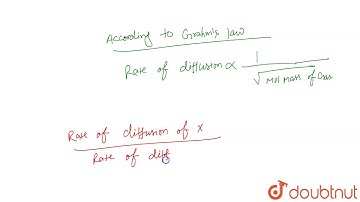 According to Graham's law
Rate of diffusion ∝ 1
√Mol Mass of Gas
Rate of diffusion of x
Rate of diff
doubtnut